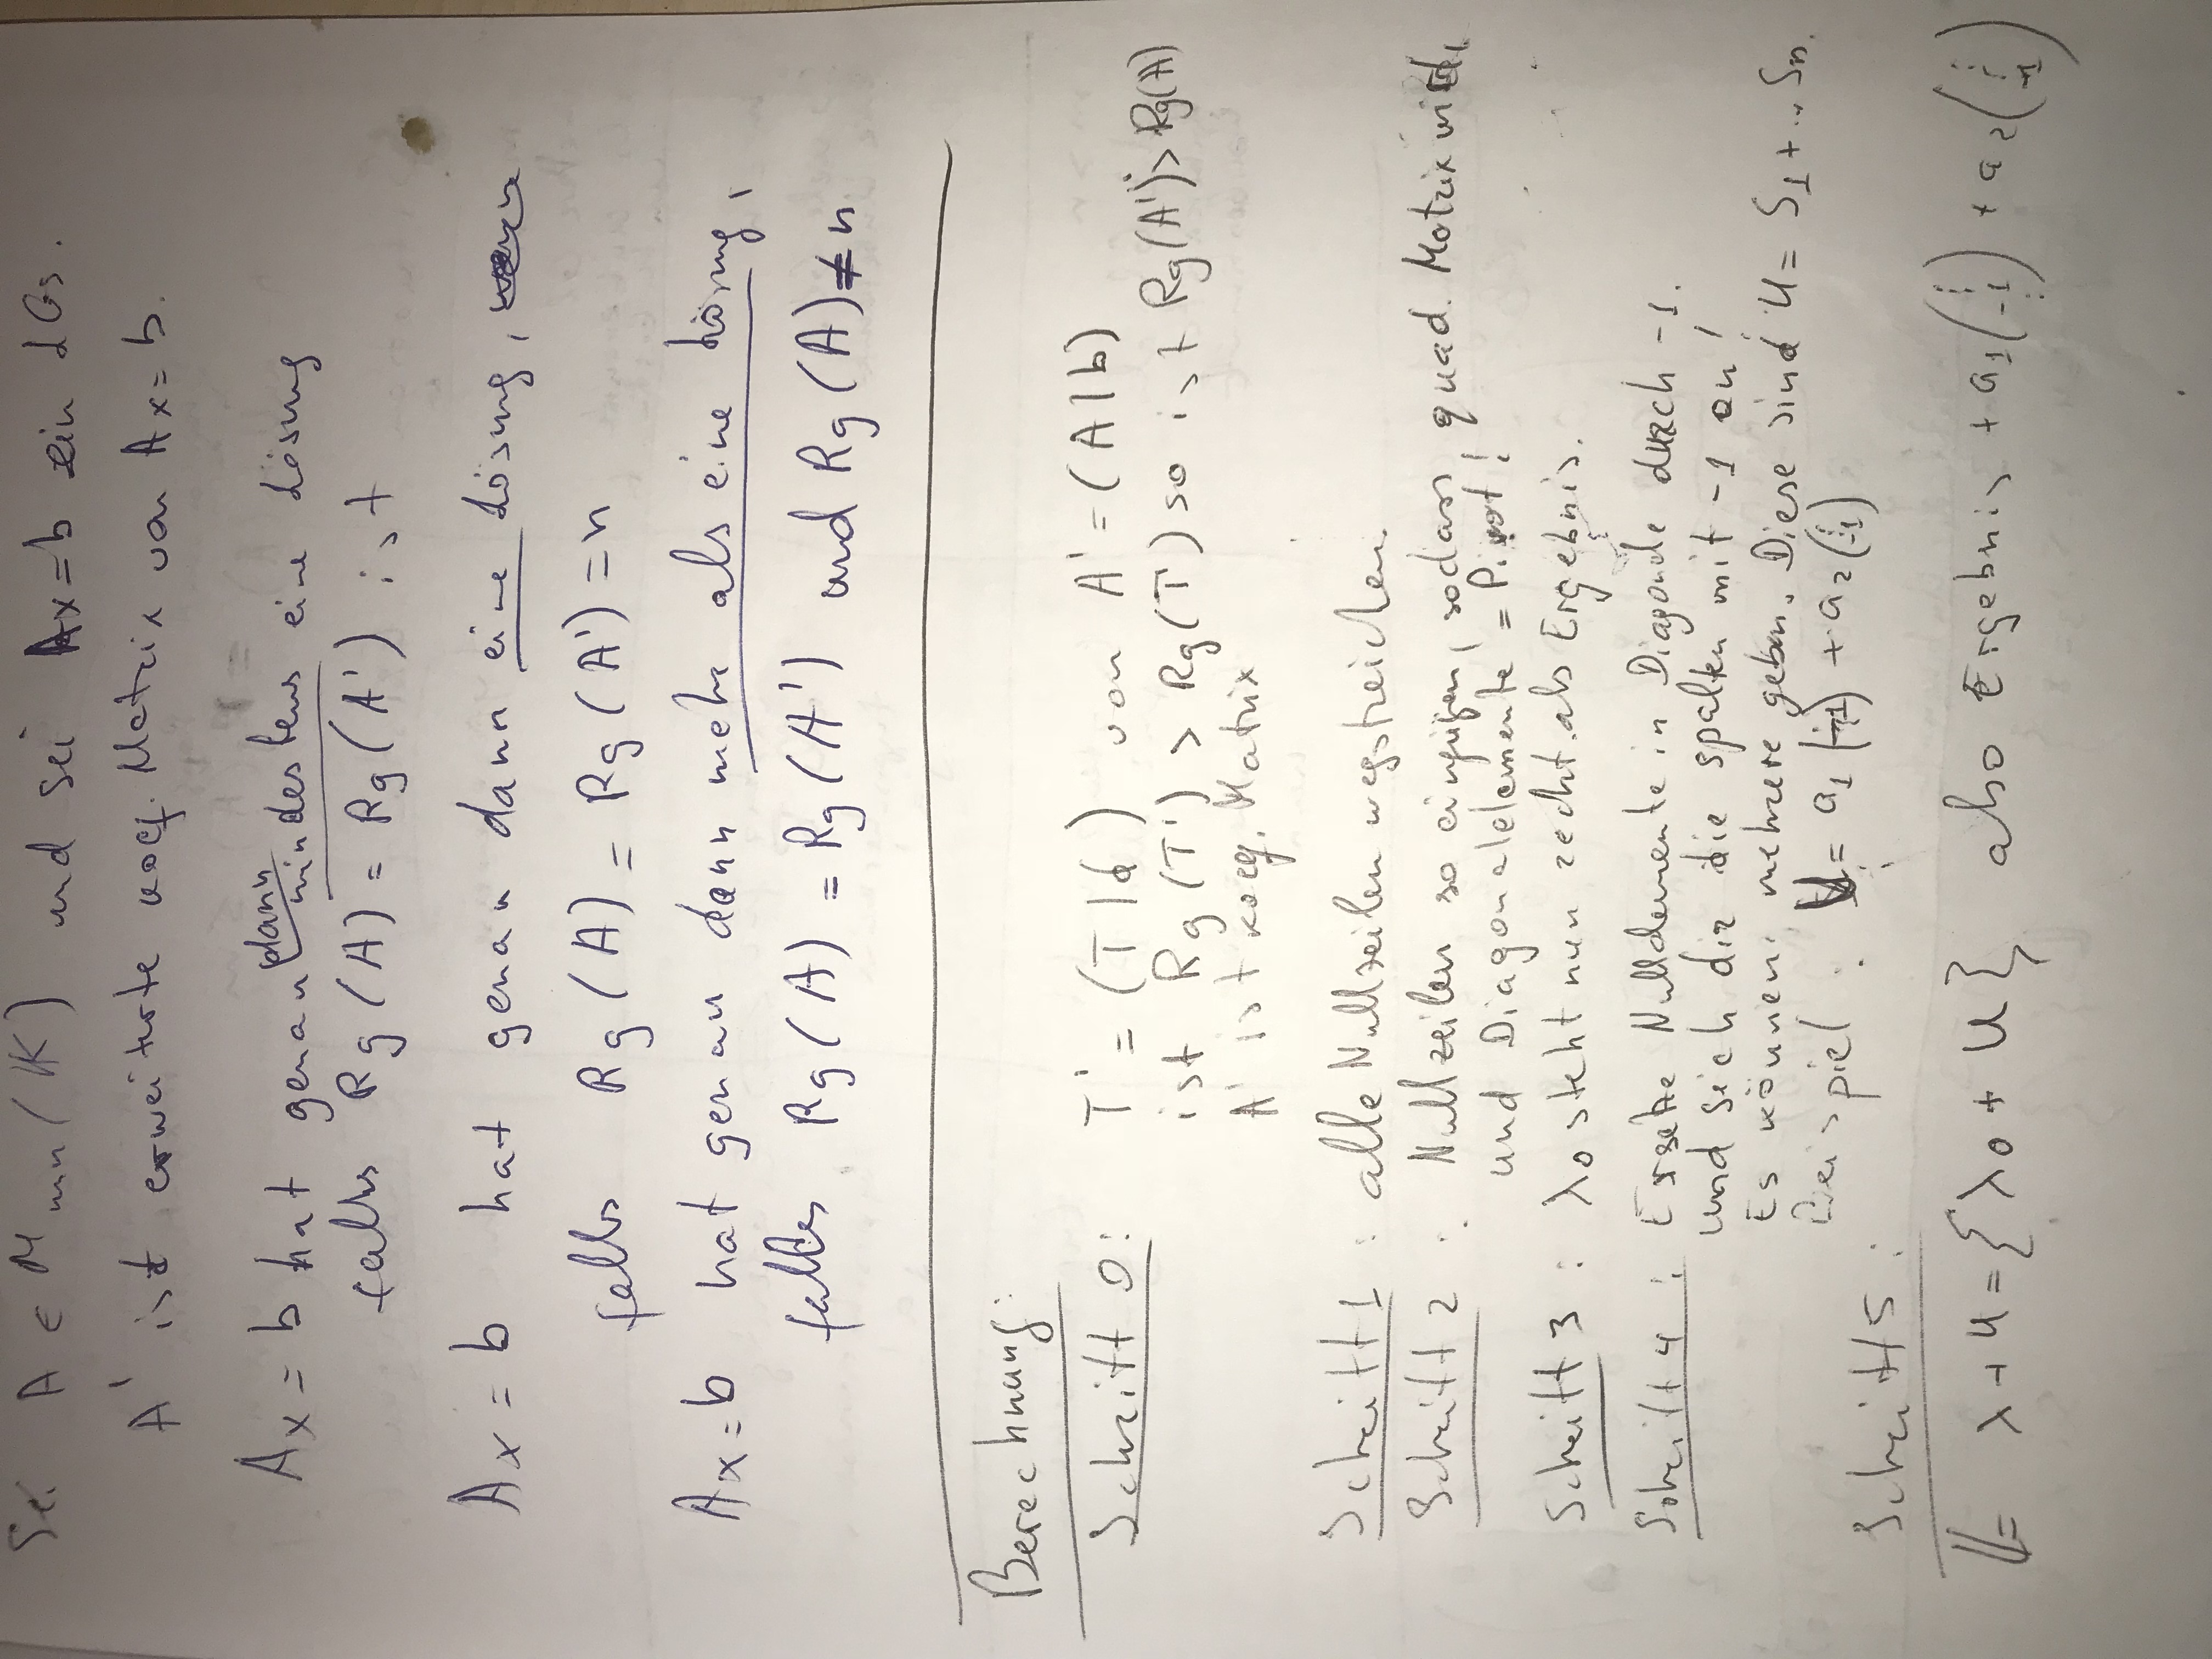 Sei A ∈ M mn (K) und sei Ax=b ein LGS.
A' ist erweiterte koef. Matrix von Ax=b.
Ax = b hat genau dann mindestens eine Lösung
falls Rg(A) = Rg(A') ist
Ax = b hat genau dann eine Lösung,
falls Rg(A) = Rg(A') = n
Ax=b hat genau dann mehr als eine Lösung,
falls Rg(A) = Rg(A') und Rg(A) ≠ n
Berechnung:
Schritt 0: T' = (T|d) von A' = (A|b)
ist Rg(T') > Rg(T) so ist Rg(A') > Rg(A)
A' ist koef. Matrix
Schritt 1: alle Nullzeilen wegstreichen.
Schritt 2: Nullzeilen so einfügen, sodass quad. Matrix wird,
und Diagonalelemente = Pivot!
Schritt 3: λ0 steht nun recht als Ergebnis.
Schritt 4: Ersetze Nullelemente in Diagonale durch -1.
und sieh dir die spalten mit -1 an!
Es können mehrere geben. Diese sind U = S1 + ... Sn.
Beispiel: U = a1 (-1) + a2 (-1)
Schritt 5:
L= λ + U = {λ0 + U} also Ergebnis + a1 (-1) + a2 (-1)